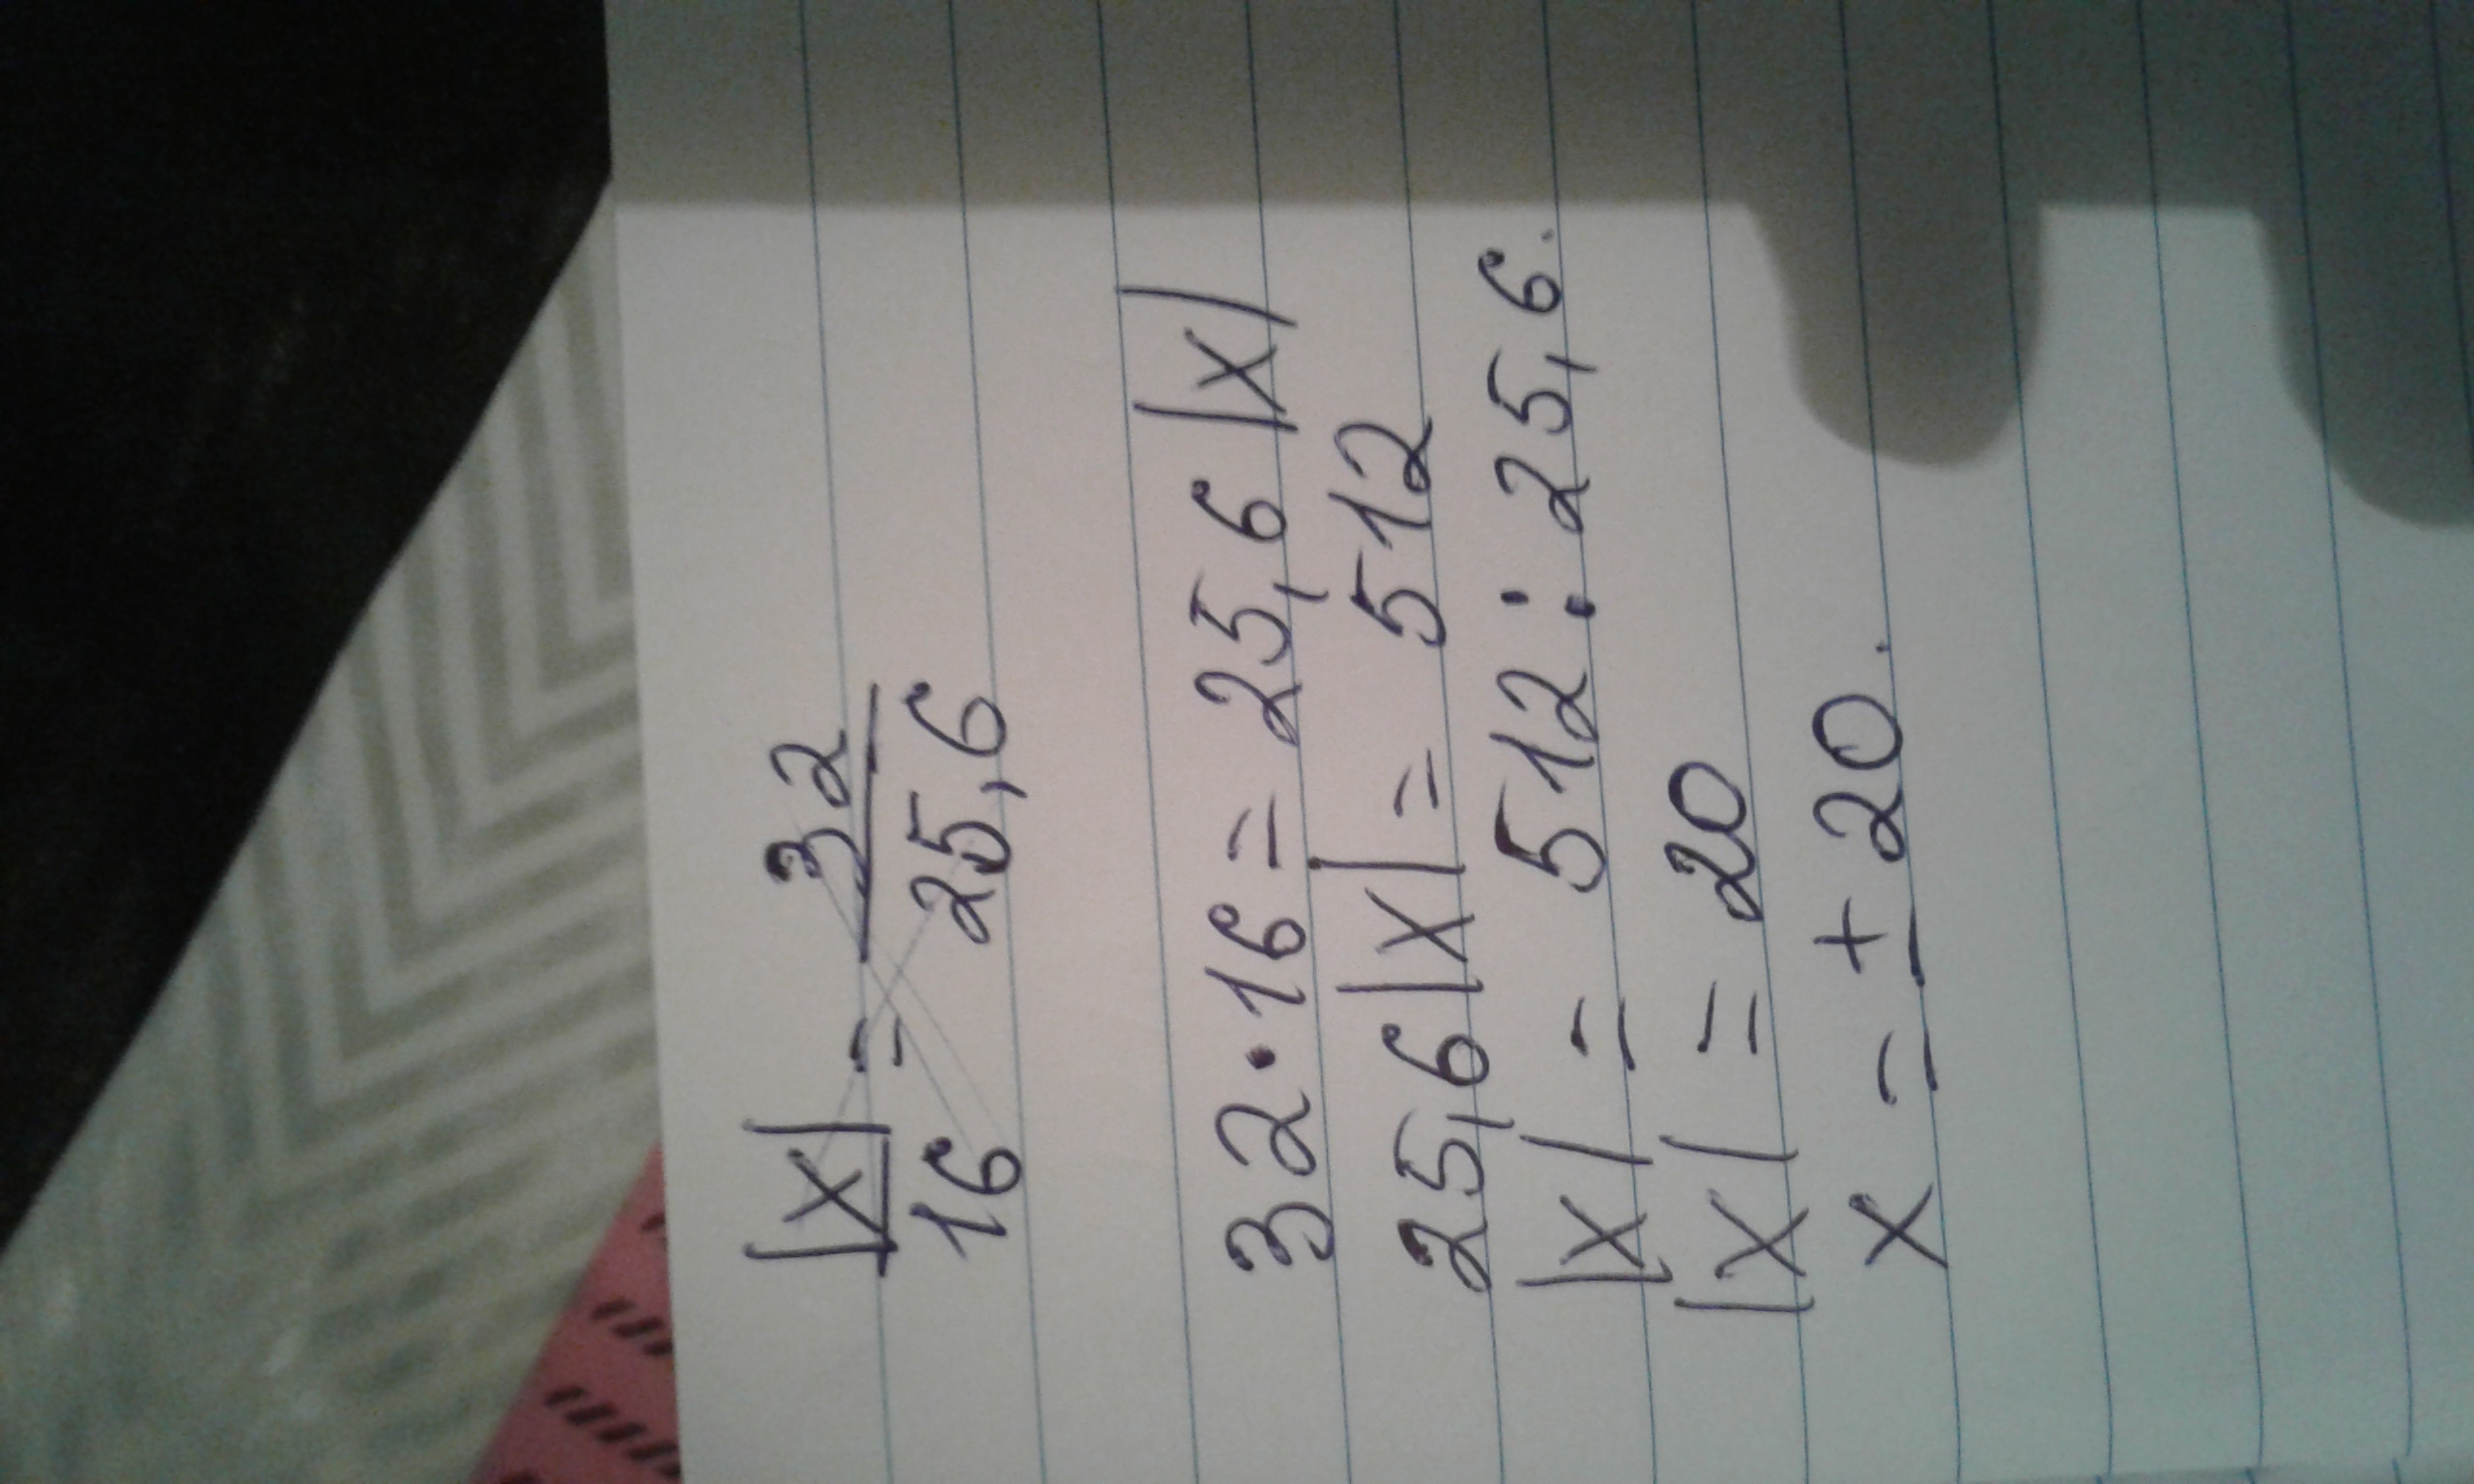 |x|/16 = 32/25,6
32·16=25,6|x|
25,6|x| = 512
|x| = 512:25,6.
|x| = 20
x = ±20.